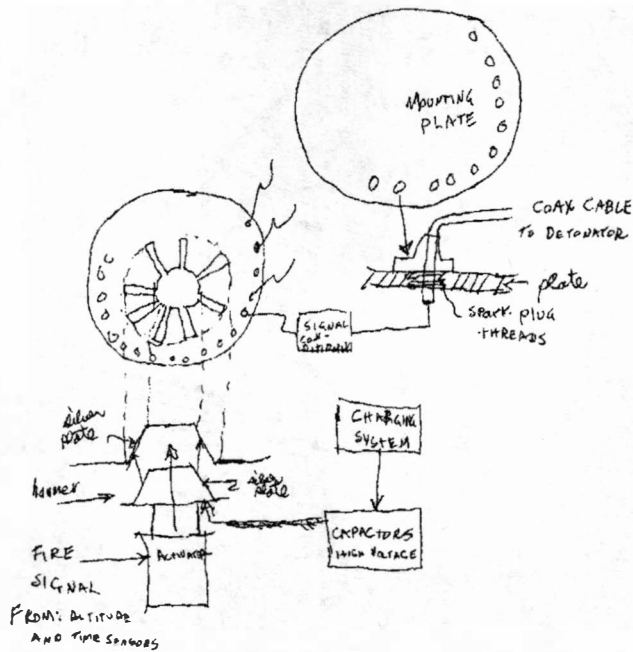 MOUNTING
PLATE
COAX CABLE
TO DETONATOR
plate
SPARK PLUG
THREADS
SIGNAL
silver
plate
silver
plate
CHARGING
SYSTEM
CAPACTORS
HIGH VOLTAGE
FIRE
SIGNAL
ACTUATOR
FROM: ALTITUDE
AND TIME SENSORS